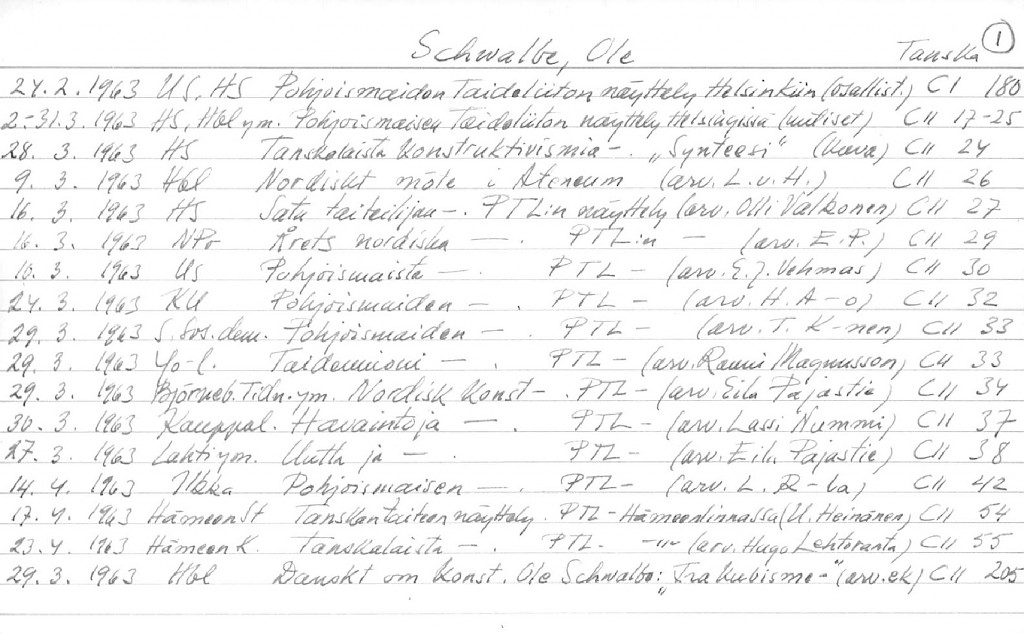 Schwalbe, Ole Tanska 1
24.2.1963 US, HS Pohjoismaiden Taideliiton näyttely Helsinkiin (osallist.) CI 180
2.-31.3.1963 HS, Hbl ym. Pohjoismaisen Taideliiton näyttely Helsingissä (uutiset) CII 17-25
28. 3. 1963 HS Tanskalaista konstruktivismia -. "Synteesi" (kuva) CII 24
9. 3. 1963 Hbl Nordiskt möte i Ateneum (arv. L.v.H.) CII 26
16. 3. 1963 HS Sata taiteilijaa -. PTL:n näyttely (arv. Olli Valkonen) CII 27
16. 3. 1963 NPr Årets nordiska -. PTL:n - (arv. E.P.) CII 29
10. 3. 1963 US Pohjoismaista -. PTL - (arv. E.J. Vehmas) CII 30
24. 3. 1963 KU Pohjoismaiden -. PTL - (arv. H. A-o) CII 32
29. 3. 1963 S. Sos.dem. Pohjoismaiden -. PTL - (arv. T. K-nen) CII 33
29. 3. 1963 Yo-l. Taideunioni -. PTL - (arv. Rauni Magnusson) CII 33
29. 3. 1963 Björneb. Tidn. ym. Nordisk Konst -. PTL - (arv. Eila Pajastie) CII 34
30. 3. 1963 Kauppal. Havaintoja -. PTL - (arv. Lassi Nummi) CII 37
27. 3. 1963 Lahti ym. Uutta ja -. PTL - (arv. Eila Pajastie) CII 38
14. 4. 1963 Ilkka Pohjoismaisen -. PTL - (arv. L. R-la) CII 42
17. 4. 1963 HämeenSt Tanskan taiteen näyttely. PTL - Hämeenlinnassa (U. Heinänen) CII 54
23. 4. 1963 Hämeen K. Tanskalaista -. PTL. -"- (arv. Hugo Lehtoranta) CII 55
29. 3. 1963 Hbl Danskt om konst. Ole Schwalbe: "Fra kubisme -" (arv. ek) CII 205